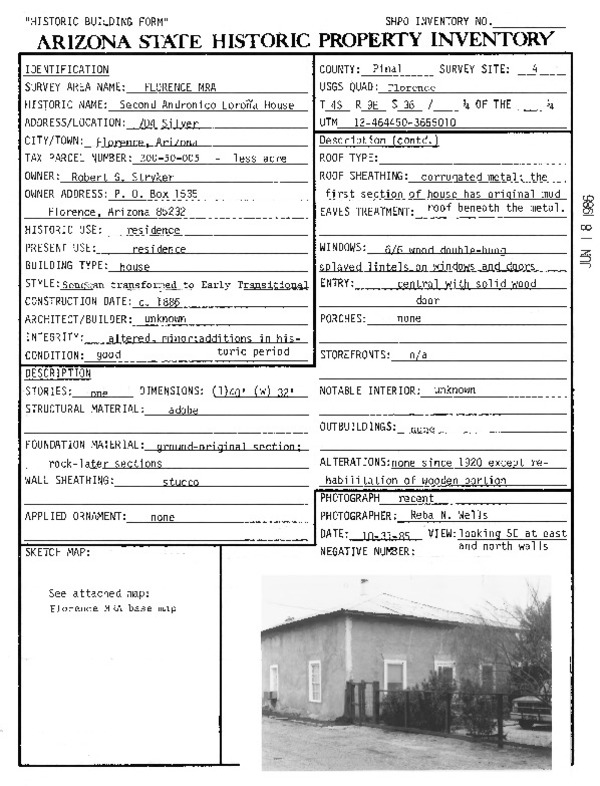 "HISTORIC BUILDING FORM" SHPO INVENTORY NO.
ARIZONA STATE HISTORIC PROPERTY INVENTORY
IDENTIFICATION
SURVEY AREA NAME: FLORENCE MRA
HISTORIC NAME: Second Andronico Loroña House
ADDRESS/LOCATION: 704 Silver
CITY/TOWN: Florence, Arizona
TAX PARCEL NUMBER: 200-50-005 - less acre
OWNER: Robert S. Stryker
OWNER ADDRESS: P. O. Box 1535
Florence, Arizona 85232
HISTORIC USE: residence
PRESENT USE: residence
BUILDING TYPE: house
STYLE: Sonoran transformed to Early Transitional
CONSTRUCTION DATE: c. 1886
ARCHITECT/BUILDER: unknown
INTEGRITY: altered, minor:additions in his-
toric period
CONDITION: good
COUNTY: Pinal SURVEY SITE: 4
USGS QUAD: Florence
T 4S R 9E S 36 / ¼ OF THE ¼
UTM 12-464450-3655010
DESCRIPTION
STORIES: one DIMENSIONS: (l)40' (w) 32'
STRUCTURAL MATERIAL: adobe
FOUNDATION MATERIAL: ground-original section;
rock-later sections
WALL SHEATHING: stucco
APPLIED ORNAMENT: none
Description (contd.)
ROOF TYPE:
ROOF SHEATHING: corrugated metal; the
first section of house has original mud
roof beneath the metal.
EAVES TREATMENT:
WINDOWS: 6/6 wood double-hung
splayed lintels on windows and doors
ENTRY: central with solid wood
door
PORCHES: none
STOREFRONTS: n/a
NOTABLE INTERIOR: unknown
OUTBUILDINGS: none
ALTERATIONS: none since 1920 except re-
habilitation of wooden portion
PHOTOGRAPH recent
PHOTOGRAPHER: Reba N. Wells
DATE: 10-31-85 VIEW: looking SE at east
and north walls
NEGATIVE NUMBER:
SKETCH MAP:
See attached map:
Florence MRA base map
JUN 18 1986